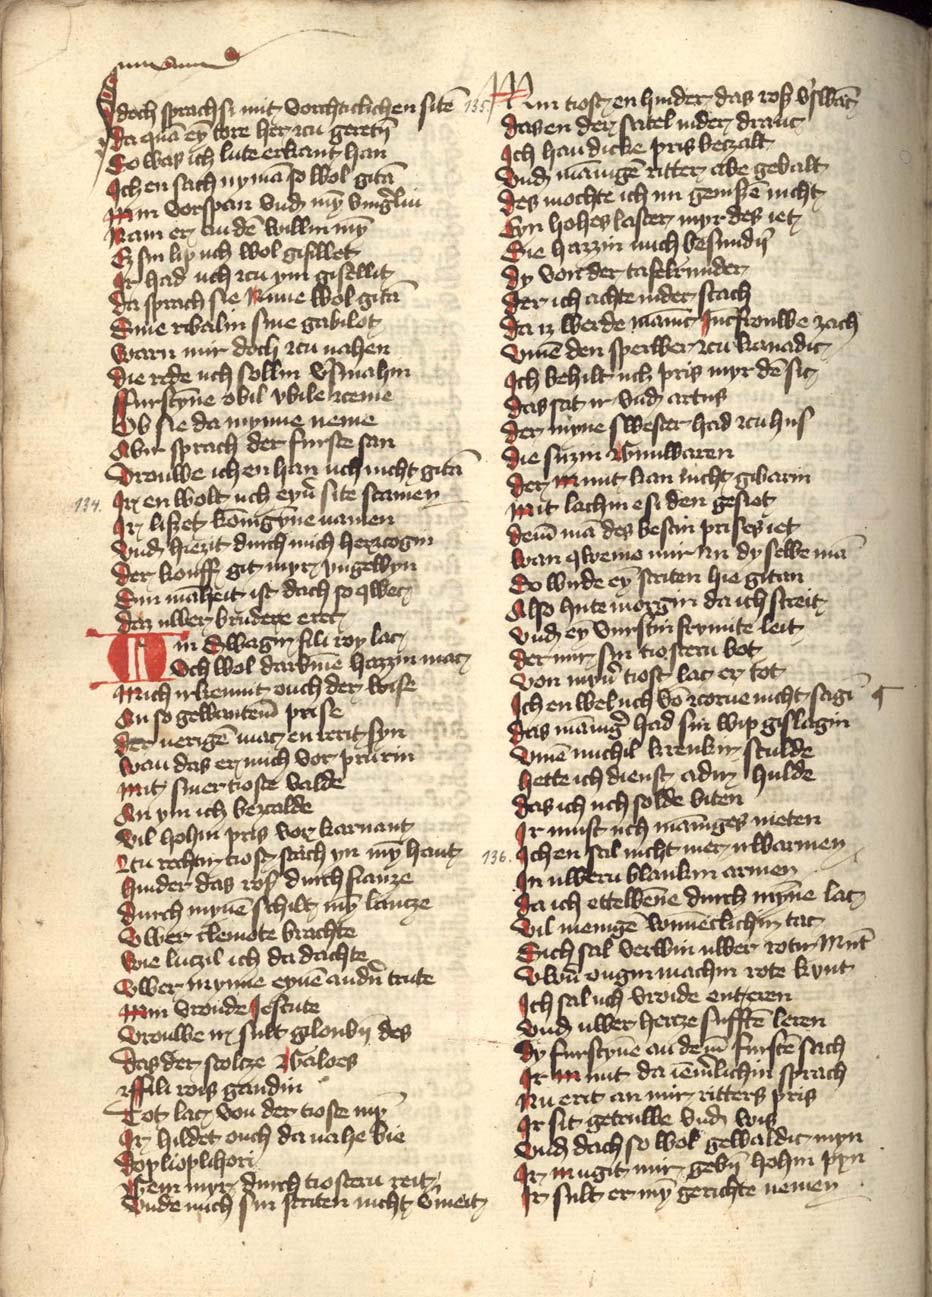 Idoch sprach si mit vorchticlichen sitē
Da quā eȳ tore her zcu geretī
So was ich lute erkant han
Ich en sach nymā so wol gitā
Min vorspan vnd mȳ ving̛lin
Nam er an dē willin mȳ
Ey sin lip uch wol gifillet
Ir had uch zcu ym gisellit
Da sprach sie Nume wol gitā
Sine ribalin sine gabilot
warn mir doch zcu nahen
Die rede uch sollin v̛smahin
Furstȳne obil vbile zceme
Ob sie da mynne neme
Abir sprach der furste san
Vrouwe ich en han uch nicht gitā
134. Ir en wolt uch eyn̄ site scamen
Ir lißet konīgȳne namen
Vnd hiezit durch mich herzcogin
Der kouff git myr vngewyn
Sin māheit ist doch so qwec
Daz uwer brudere erec
Min Swagir fili roy lac
Uch wol darūme hazzin mac
Mich irkennit ouch der wise
An so gewantem̄ prise
Der nerigē mac en trit syn
wan das er mich vor prurin
Mit siner tioste valde
An ym ich bezcalde
Vil hohin pris vor karnant
Zcu rechtir tiost stach yn mȳ hant
Hinder das roß durch fianze
Durch mynē schilt mȳ lantze
Vwer clemote brachte
wie luczil ich da dachte
Vwer mynne eynē andn̄ trute
Min vroude Jescute
Vrouwe ir sult gloubī des
Das der stoltze Galoes
Fili rois gandin
Tot lac von der tioste mȳ
Ir hildet ouch da nahe bie
Doplioplihori
Gein myr durch tiosteru reit
Vnde mich sin striten nicht v̄meit
135. Min tiost en hinder das roß v̛swāc
Das en der satel nider dranc
Ich han dicke pris bezalt
Vnd manīgē ritter abe gevalt
Des mochte ich nu genißē nicht
Eyn hohes laster myr des iet
Die hazzin mich besundī
Dy von der tafelrunder
Der ich achte nider stach
Da iz werde manīc Juncfrouwe zach
Vmē den sperwer zcu kanadic
Ich behilt uch pris myr dē sic
Das sat ir vnd artus
Der myne swester had zcu hus
Die suzin Cunnwaren
Der Munt kan nicht gibarin
Mit lachin e si den gesiet
Dem̄ mā des besten prises iet
wan qweme mir nu dy selbe mā
So wūde eȳ striten hie gitan
Also hute morgin da ich streit
Vnd eȳ vurstin frumte leit
Der mir syn tiosteru bot
Von myn̄ tiost lac er tot
Ich en wel uch vō zcorne nicht sagī
Das manīg̛ had sin wip gislagin
Vmē michil krenkir sculde
Hette ich dienst adir hulde
Das ich uch solde biten
Ir must uch manīges nieten
136. Ich en sal nicht mer irwarmen
In uwern blankin armen
Da ich ettewēne durch mȳne lac
Vil menigen wūneclichin tac
Euch sal verwin uwer rotir Mūt
Vwn̄ ougin machin rote kunt
Ich sal uch vroide enteren
Vnd uwer hertze suffttē leren
Dy furstȳne an dem̄ furstē sach
Ir Munt da iem̄lichin sprach
Nu erit an mir ritters pris
Ir sit getruwe vnd wis
Vnd doch so wol gewaldic myn
Ir mugit mir gebī hohin pyn
Ir sult er mȳ gerichte nemen